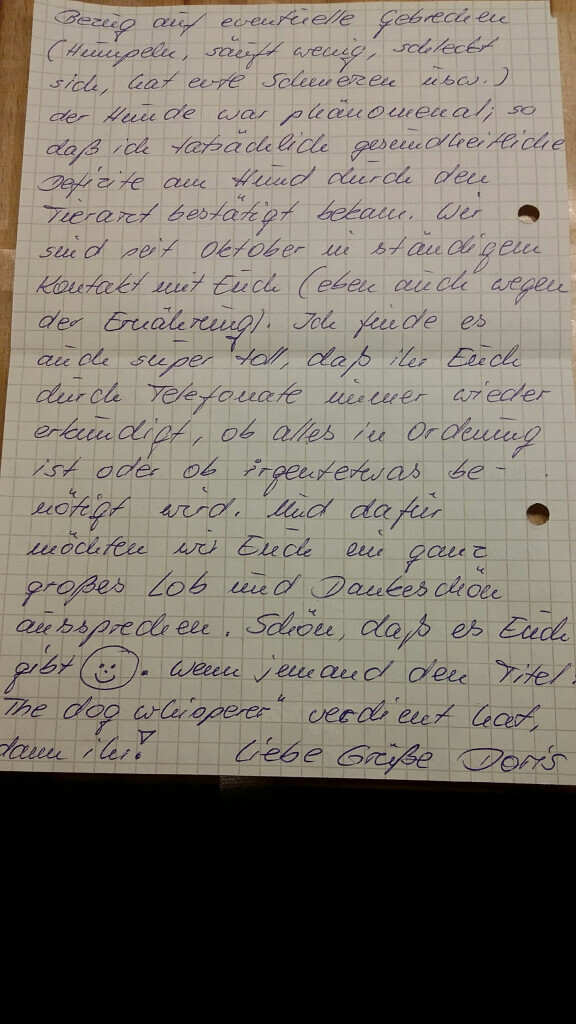 Bezug auf eventuelle Gebrechen
(Humpeln, säuft wenig, schleckt
sich, hat evtl Schmerzen usw.)
der Hunde war phänomenal; so
daß ich tatsächlich gesundheitliche
Defizite am Hund durch den
Tierarzt bestätigt bekam. Wir
sind seit Oktober in ständigem
Kontakt mit Euch (eben auch wegen
der Ernährung). Ich finde es
auch super toll, daß ihr Euch
durch Telefonate immer wieder
erkundigt, ob alles in Ordnung
ist oder ob irgentetwas be-
nötigt wird. Und dafür
möchten wir Euch ein ganz
großes Lob und Dankeschön
aussprechen. Schön, daß es Euch
gibt ☺. Wenn jemand den Titel
The dog whisperer" verdient hat,
dann ihr! Liebe Grüße Doris